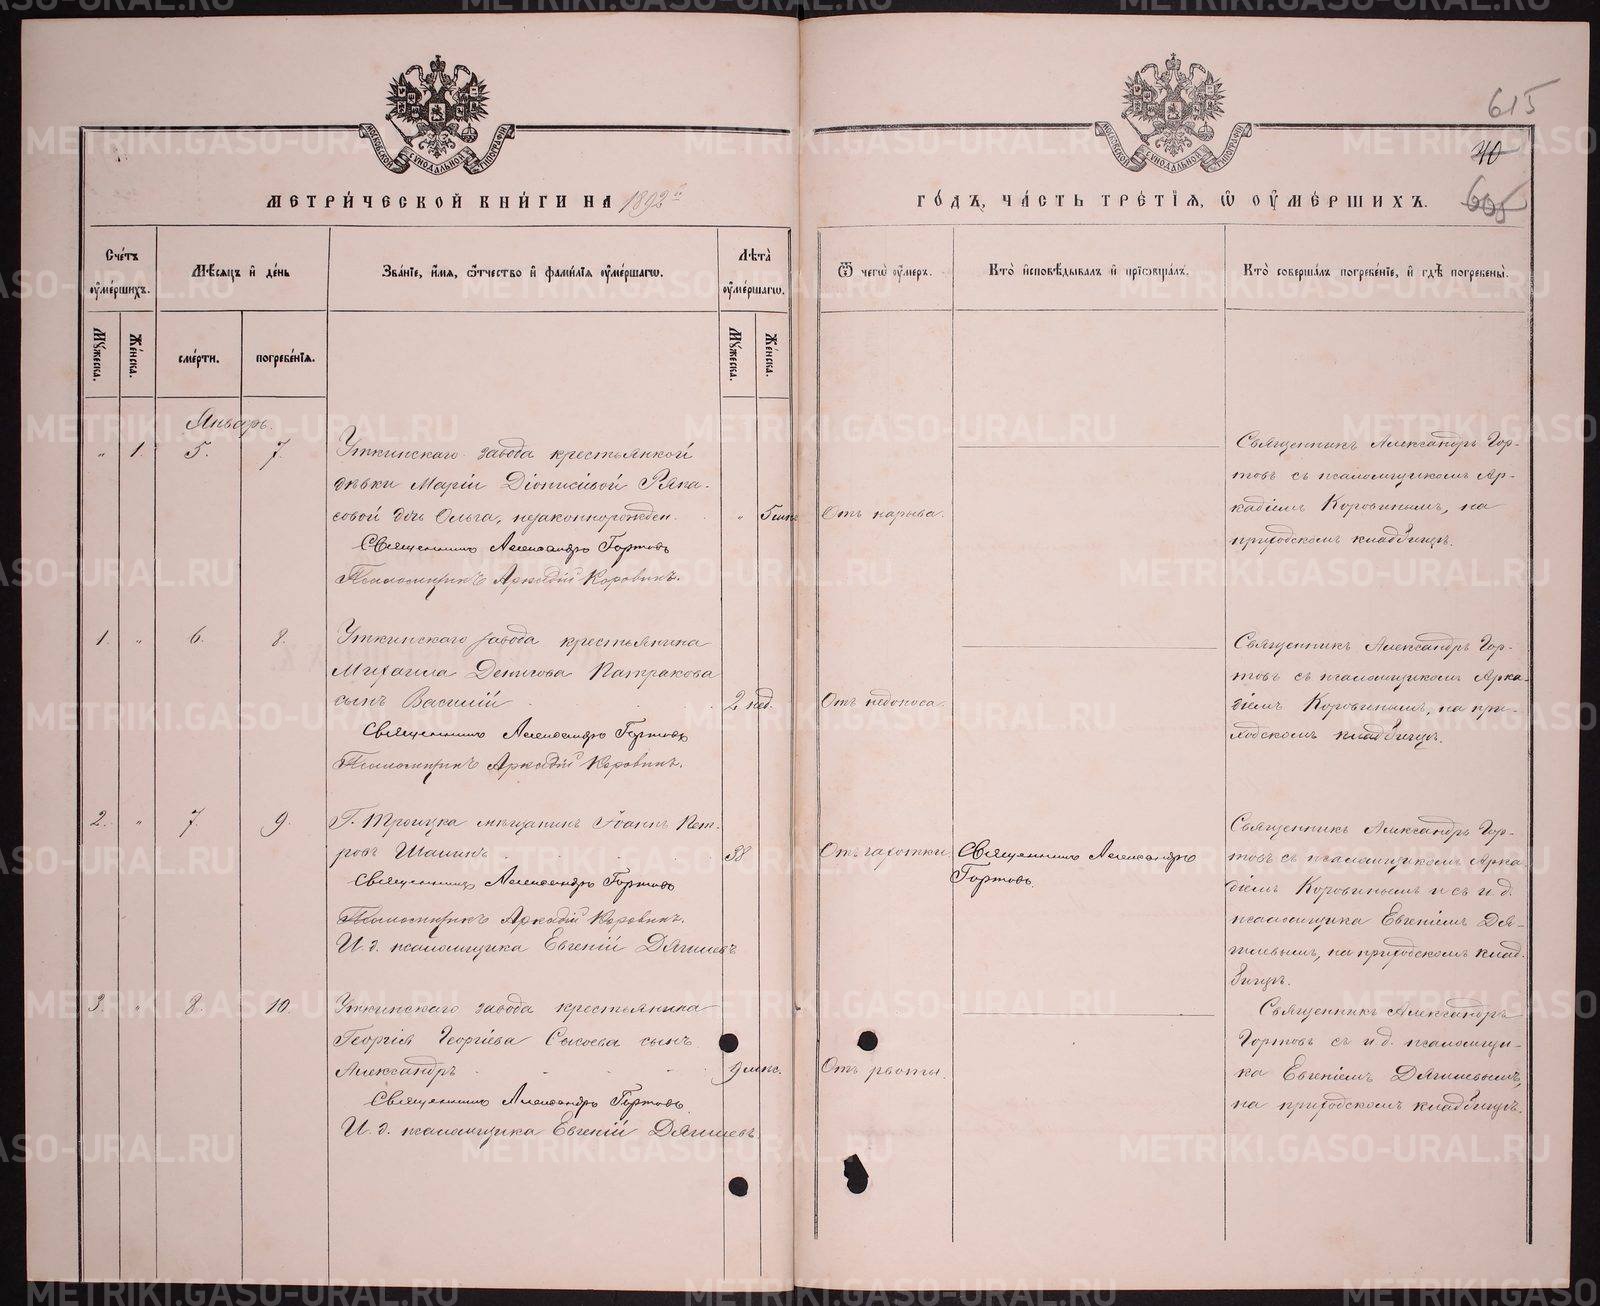 615
40
605
МОСКОВСКОЙ СѴНОДАЛЬНОЙ ТИПОГРАФІИ
МОСКОВСКОЙ СѴНОДАЛЬНОЙ ТИПОГРАФІИ
МЕТРИ́ЧЕСКОЙ КНИ́ГИ НА 1892й
ГО́ДЪ, ЧА́СТЬ ТРЕ́ТІѦ, Ѿ ОУ҆МЕ́РШИХЪ.
Сче́тъ оу҆ме́ршихъ.
Мѣ́сѧцъ и҆ де́нь
Зва́ніе, и҆́мѧ, ѻ҆́тчество и҆ фами́лїѧ оу҆ме́ршагѡ.
Лѣ́та̀ оу҆ме́ршагѡ.
Ѿ чегѡ̀ оу҆́меръ.
Кто̀ и҆сповѣ́дывалъ и҆ прїѡбща́лъ.
Кто̀ соверша́лъ погребе́ніе, и҆ гдѣ̀ погребены̀.
Мꙋ́жеска.
Же́нска.
сме́рти.
погребе́нїѧ.
Мꙋ́жеска.
Же́нска.
Январь.
" 1. 5. 7. Уткинскаго завода крестьянкой
дѣвки Маріи Діонисіевой Ряка-
совой дочь Ольга, незаконнорожден. " 5 мѣс
Священникъ Александръ Гортовъ
Псаломщикъ Аркадій Коровинъ.
Отъ нарыва.
Священникъ Александръ Гор-
товъ съ псаломщикомъ Ар-
кадіемъ Коровинымъ, на
приходскомъ кладбищѣ.
1. " 6. 8. Уткинскаго завода крестьянина
Михаила Денисова Патракова
сынъ Василій 2 нед.
Священникъ Александръ Гортовъ
Псаломщикъ Аркадій Коровинъ.
Отъ недоноса.
Священникъ Александръ Гор-
товъ съ псаломщикомъ Арка-
діемъ Коровинымъ, на при-
ходскомъ кладбищѣ.
2. " 7. 9. Г. Троицка мѣщанинъ Іоаннъ Пет-
ровъ Шашинъ 38
Священникъ Александръ Гортовъ
Псаломщикъ Аркадій Коровинъ.
И. д. псаломщика Евгеній Дягилевъ
Отъ чахотки
Священникъ Александръ
Гортовъ.
Священникъ Александръ Гор-
товъ съ псаломщикомъ Арка-
діемъ Коровинымъ и съ и. д.
псаломщика Евгеніемъ Дя-
гилевымъ, на приходскомъ клад-
бищѣ.
3. " 8. 10. Уткинскаго завода крестьянина
Георгія Георгіева Сысоева сынъ
Александръ 9 мѣс.
Священникъ Александръ Гортовъ
И. д. псаломщика Евгеній Дягилевъ
Отъ рвоты.
Священникъ Александръ
Гортовъ съ и. д. псаломщи-
ка Евгеніемъ Дягилевымъ,
на приходскомъ кладбищѣ.
METRIKI.GASO-URAL.RU